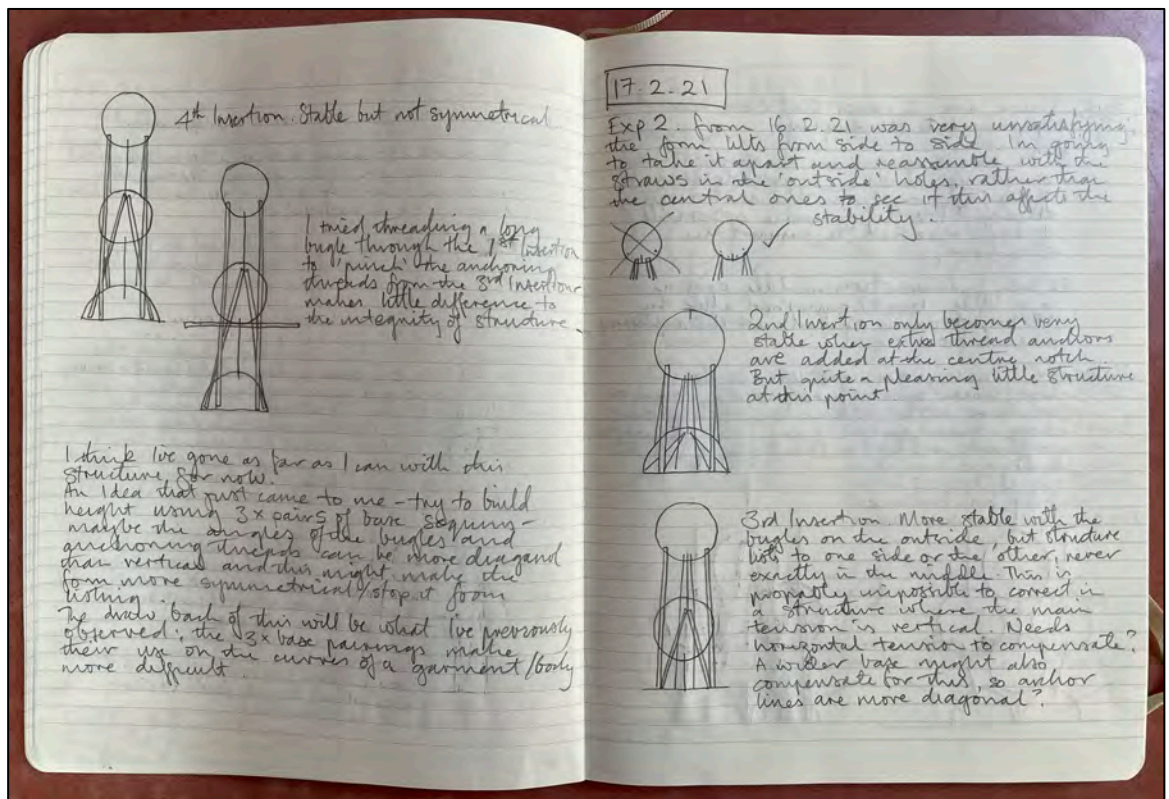 4th Insertion. Stable but not symmetrical
I tried threading a long
bugle through the 1st Insertion
to 'pinch' the anchoring
threads from the 3rd Insertion
makes little difference to
the integrity of structure.
I think I've gone as far as I can with this
structure for now.
An Idea that just came to me - try to build
height using 3x pairs of base sequins -
maybe the angles of the bugles and
anchoring threads can be more diagonal
than vertical and this might make the
form more symmetrical/stop it from
listing.
The draw back of this will be what I've previously
observed; the 3x base pairings make
their use on the curves of a garment/body
more difficult.
17.2.21
Exp 2. from 16.2.21 was very unsatisfying,
the form lilts from side to side. I'm going
to take it apart and reassemble with the
straws in the 'outside' holes, rather than
the central ones to see if this affects the
stability.
2nd Insertion only becomes very
stable when extra thread anchors
are added at the centre notch.
But quite a pleasing little structure
at this point
3rd Insertion. More stable with the
bugles on the outside, but structure
lists to one side or the other, never
exactly in the middle. This is
propably impossible to correct in
a structure where the main
tension is vertical. Needs
horizontal tension to compensate?
A wider base might also
compensate for this, so anchor
lines are more diagonal?